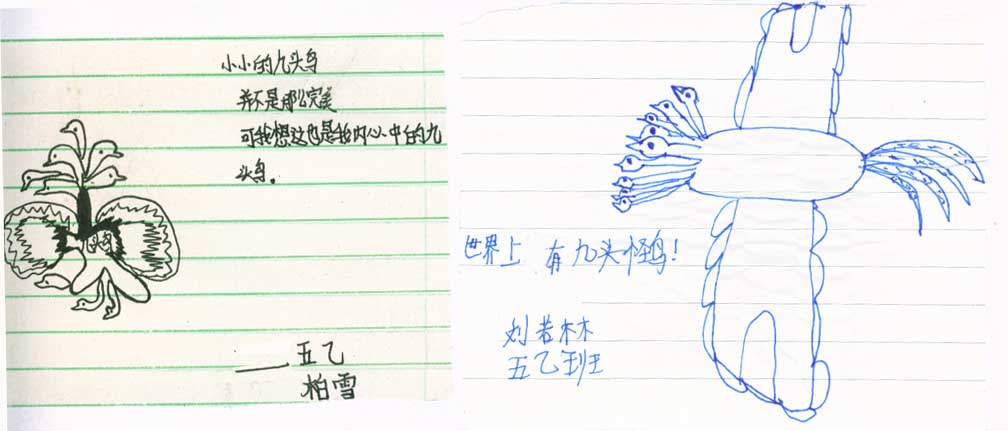 小小的九头鸟
并不是那么完美
可我想这也是我内心中的九
头鸟。
——五乙
柏雪
世界上 有九头怪鸟!
刘若林
五乙班